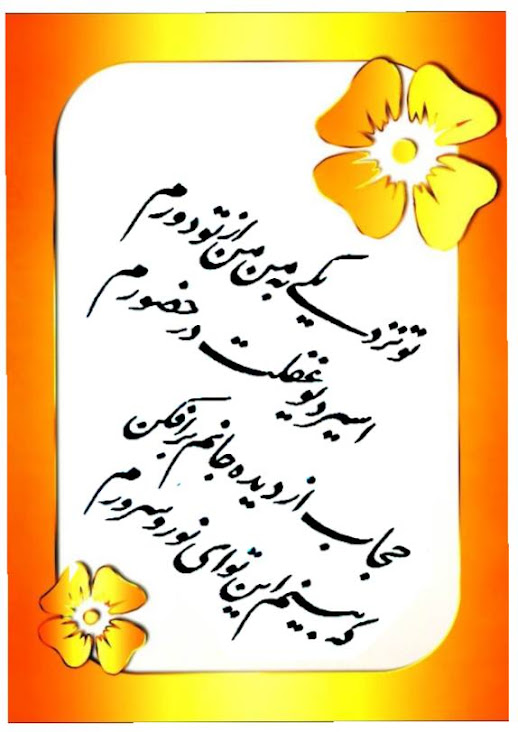 تو نزدیکی به من من از تو دورم
اسیر دیو غفلت در حضورم
حجاب از دیده جانم برافکن
که بینم این توای نور و سرورم